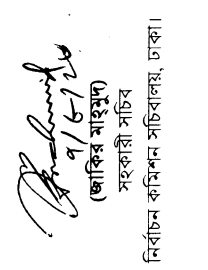 ৭/৮/২৩
(জাকির মাহমুদ)
সহকারী সচিব
নির্বাচন কমিশন সচিবালয়, ঢাকা।